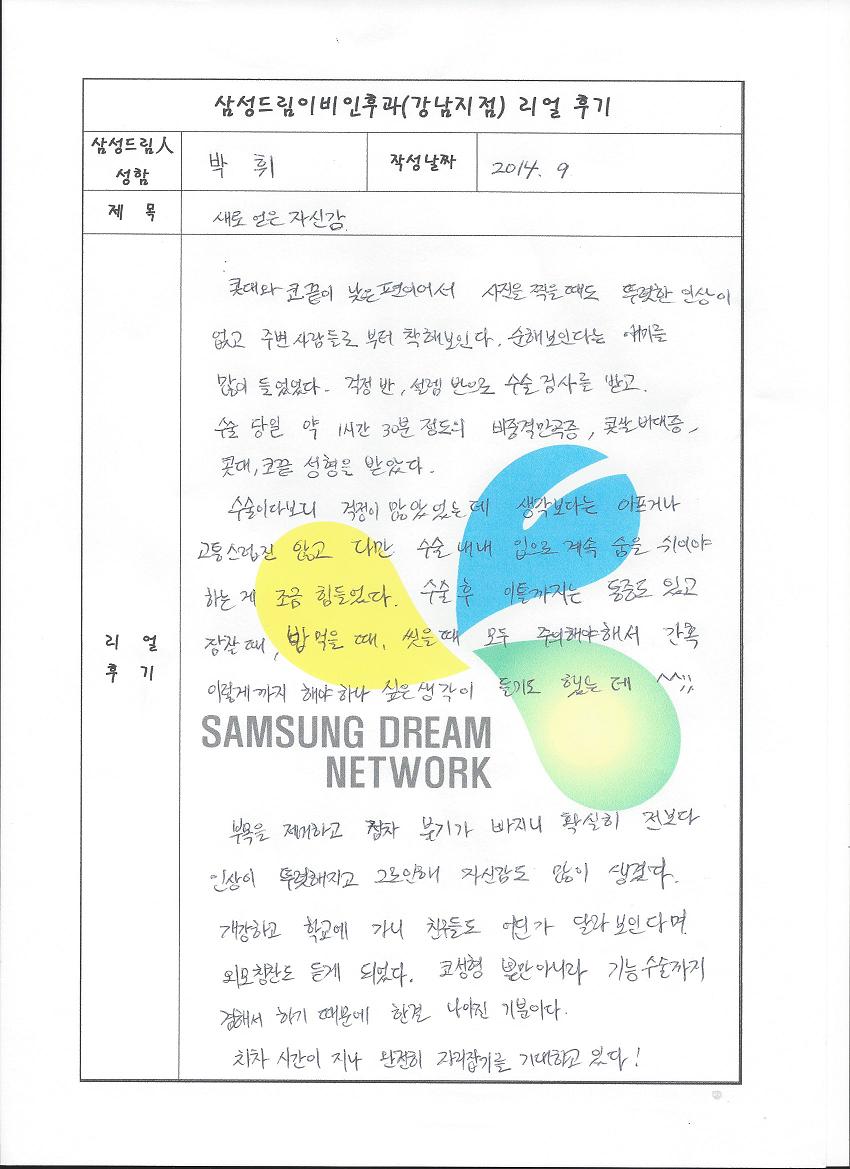 삼성드림이비인후과(강남지점) 리얼 후기
삼성드림人
성함
박 휘
작성날짜
2014. 9
제 목
새로 얻은 자신감
리 얼
후 기
콧대와 코끝이 낮은편이어서 사진을 찍을때도 뚜렷한 인상이
없고 주변사람들로 부터 착해보인다. 순해보인다는 얘기를
많이 들었었다. 걱정반, 설렘반으로 수술검사를 받고.
수술 당일 약 1시간 30분정도의 비중격만곡증, 콧살비대증,
콧대, 코끝 성형을 받았다.
수술이다보니 걱정이 많았었는데 생각보다는 아프거나
고통스럽진 않고 다만 수술내내 입으로 계속 숨을 쉬어야
하는게 조금 힘들었다. 수술후 이틀까지는 통증도 있고
잠잘때, 밥먹을 때, 씻을때 모두 주의해야해서 간혹
이렇게까지 해야하나 싶은생각이 들기도 했는데 ^^;;
SAMSUNG DREAM
NETWORK
부목을 제거하고 점차 붓기가 빠지니 확실히 전보다
인상이 뚜렷해지고 그로인해 자신감도 많이 생겼다.
개강하고 학교에 가니 친구들도 어딘가 달라보인다며
외모칭찬도 듣게 되었다. 코성형 뿐만아니라 기능수술까지
겸해서 하기 때문에 한결 나아진 기분이다.
차차 시간이 지나 완전히 자리잡기를 기대하고 있다!